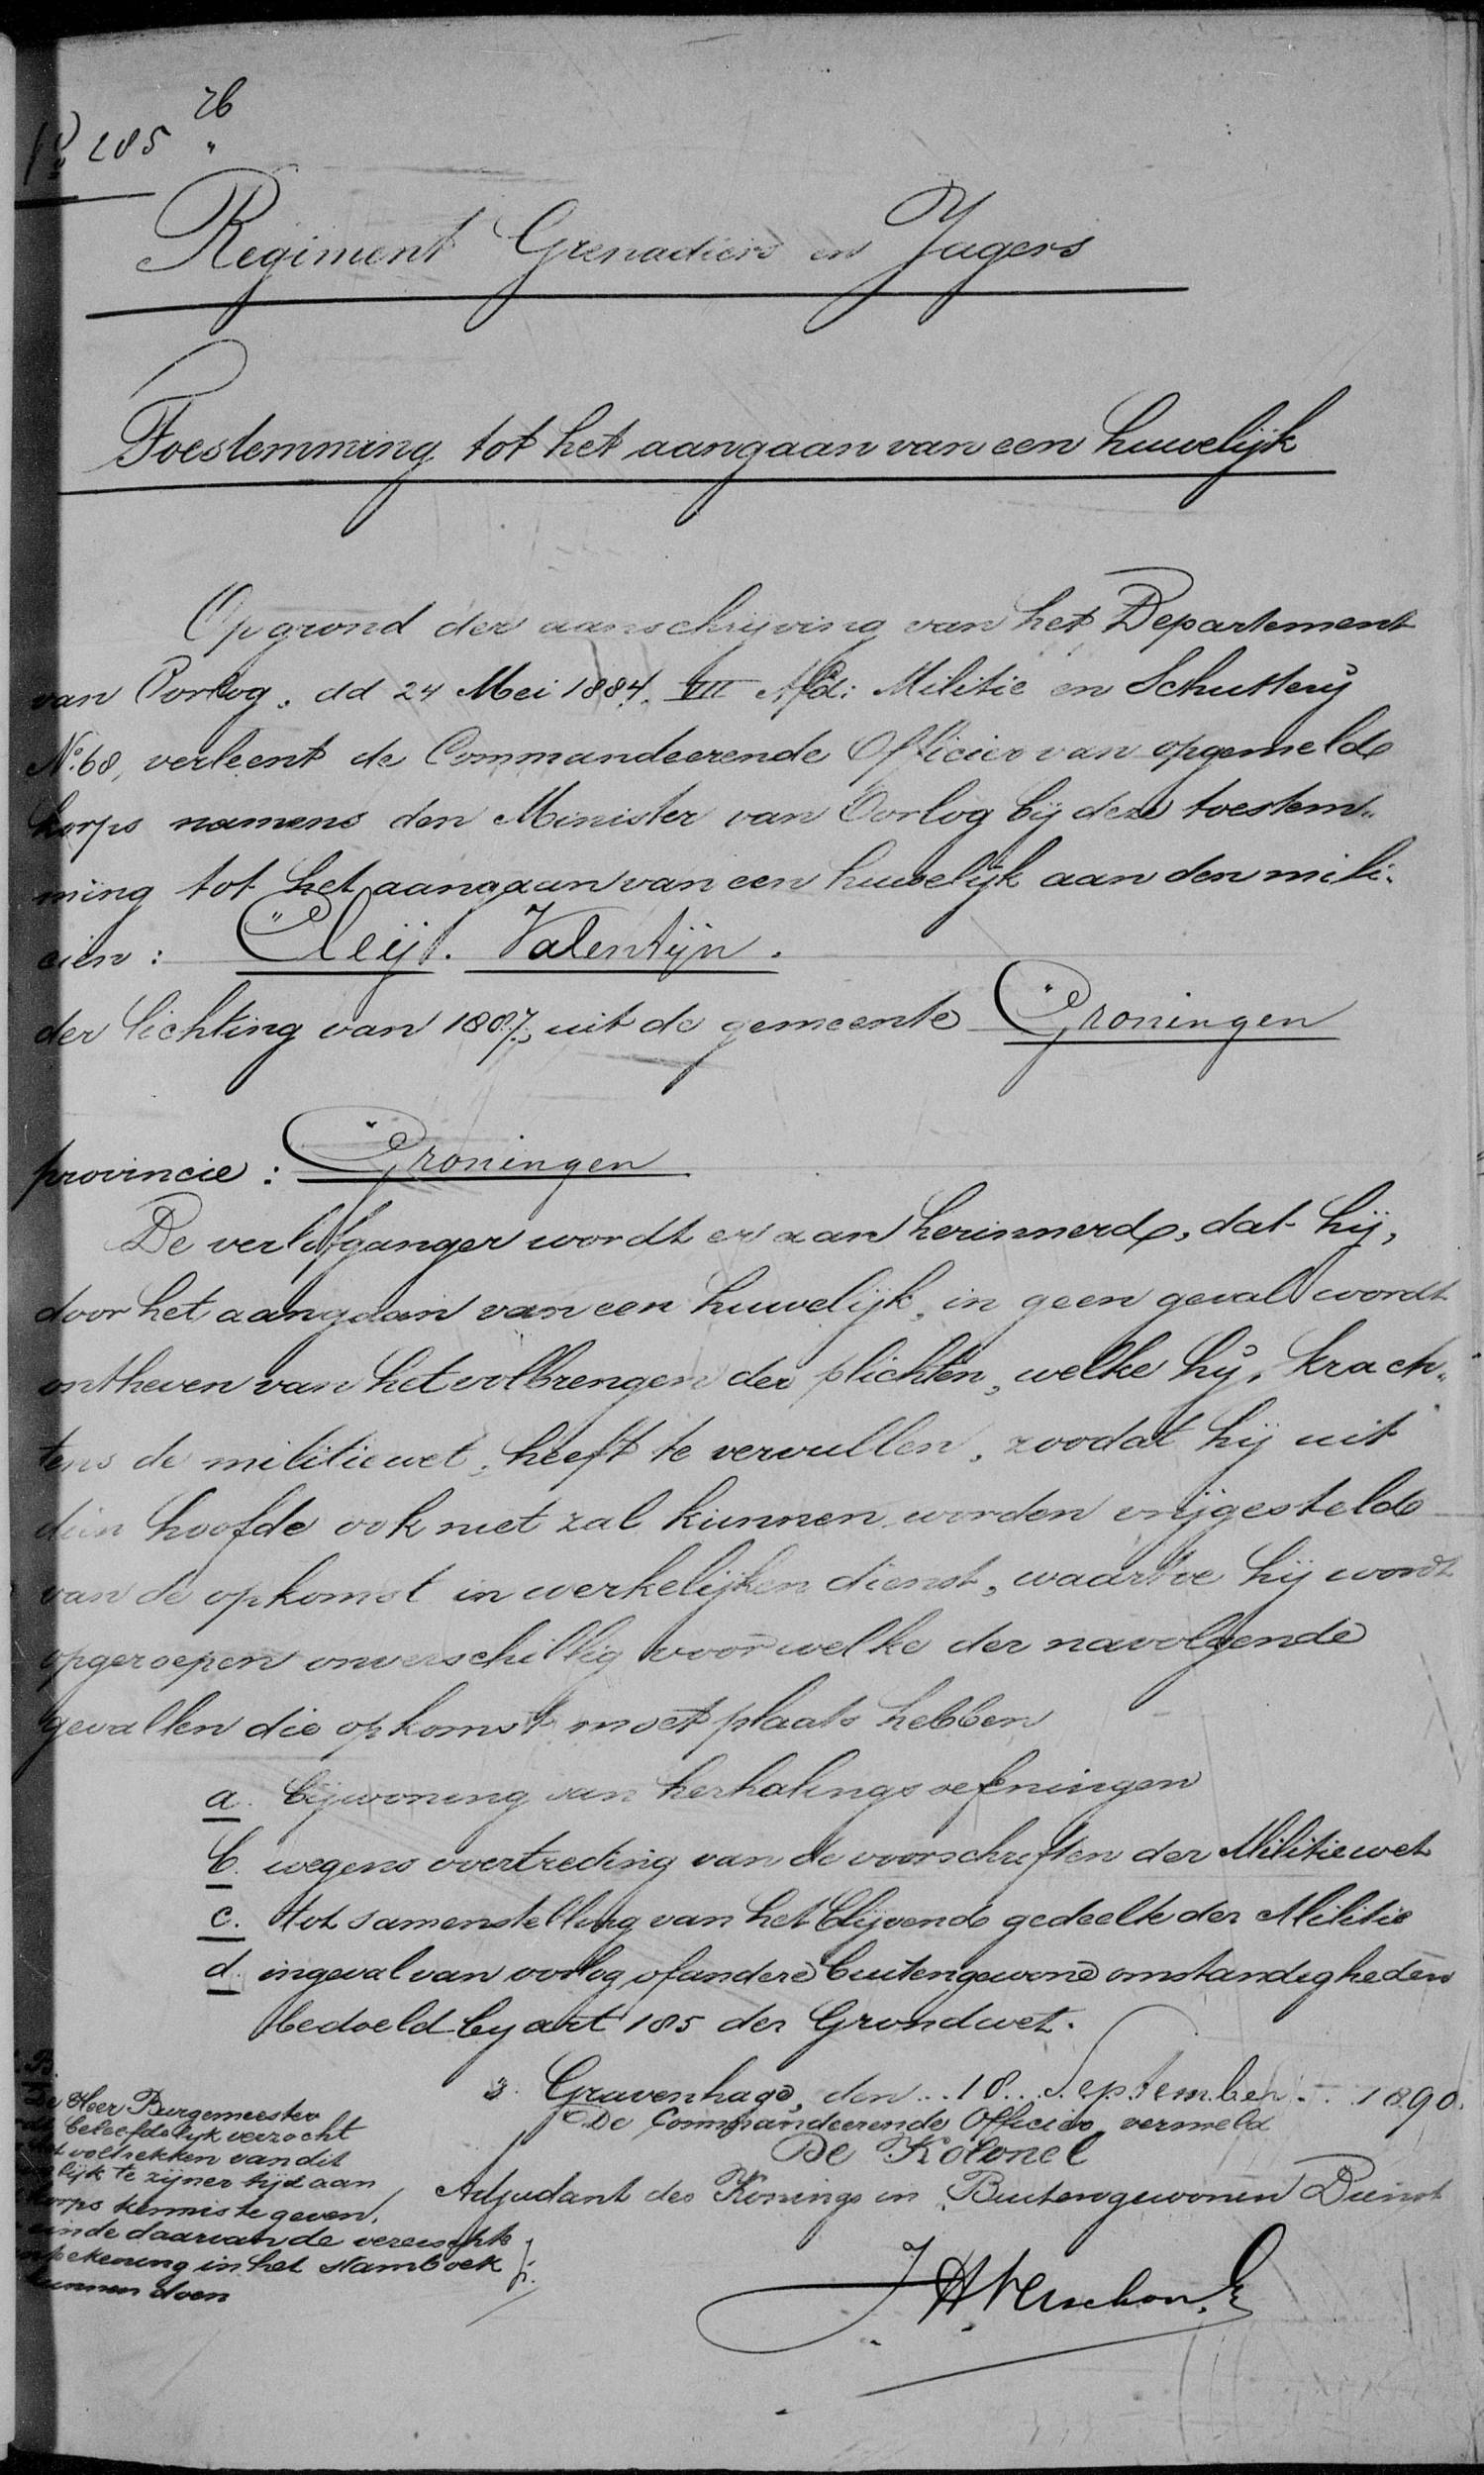 No 285 26
Regiment Grenadiers en Jagers
Toestemming tot het aangaan van een huwelijk
Op grond der aanschrijving van het Departement
van Oorlog. dd 24 Mei 1884. VII Afd: Militie en Schutterij
No. 68, verleent de Commandeerende Officier van opgemeld
korps namens den Minister van Oorlog bij deze toestem„
ming tot het aangaan van een huwelijk aan den mili„
cien: Cleij. Valentijn.
der lichting van 1887, uit de gemeente Groningen
provincie: Groningen
De verlofganger wordt er aan herinnerd, dat hij,
door het aangaan van een huwelijk, in geen geval wordt
ontheven van het volbrengen der plichten, welke hij, krach„
tens de militiewet, heeft te vervullen, zoodat hij uit
dien hoofde ook niet zal kunnen worden vrijgesteld
van de opkomst in werkelijken dienst, waartoe hij wordt
opgeroepen onverschillig voor welke der navolgende
gevallen die opkomst moet plaats hebben
a. bijwoning van herhalingsoefeningen
b. wegens overtreding van de voorschriften der Militiewet
c. tot samenstelling van het blijvend gedeelte der Militie
d. ingeval van oorlog of andere buitengewone omstandigheden
bedoeld by art 185 der Grondwet.
s. Gravenhage, den 18 September 1890.
De Commandeerende Officier vermeld
De Kolonel
Adjudant des Konings in Buitengewonen Dienst
De Heer Burgemeester
beleefdelyk verzocht
voltrekken van dit
lijk te zijner tijd aan
korps kennis te geven,
einde daarvan de vereischte
kening in het stamboek
kunnen doen